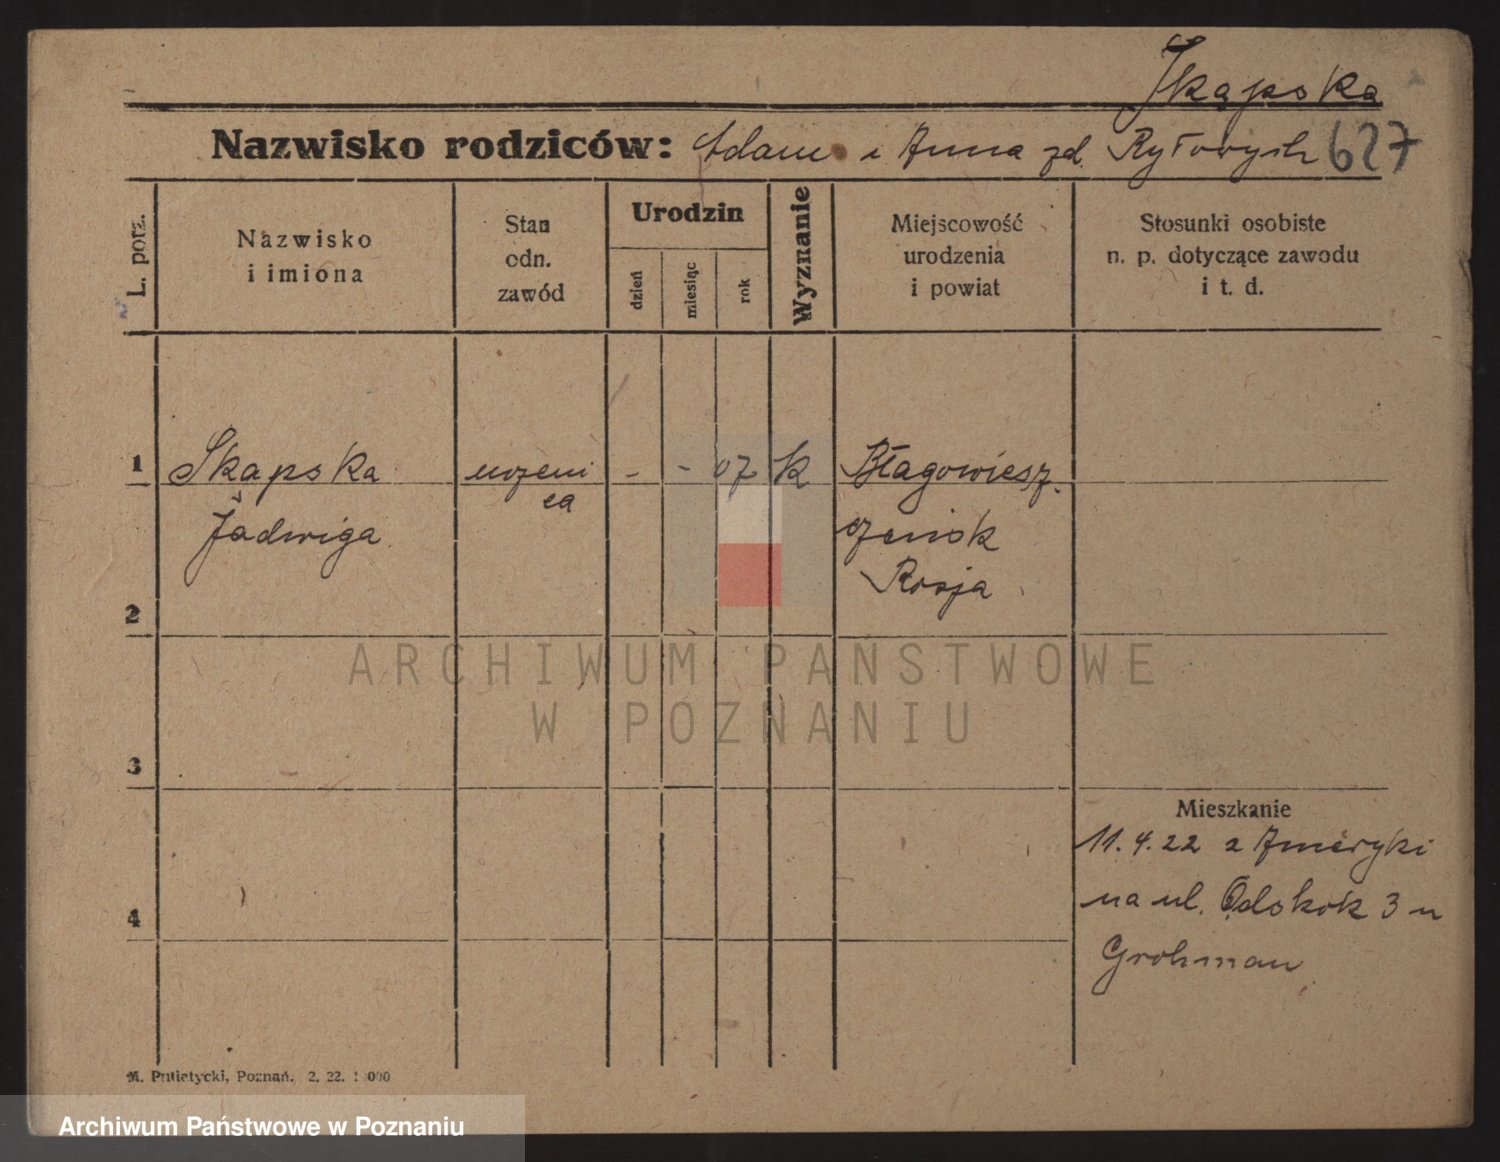 Skąpska
Nazwisko rodziców: Adam i Anna zd. Ryłowych 627
L. porz.
Nazwisko
i imiona
Stan
odn.
zawód
Urodzin
dzień
miesiąc
rok
Wyznanie
Miejscowość
urodzenia
i powiat
Stosunki osobiste
n. p. dotyczące zawodu
i t. d.
1 Skapska uczeni - - 07 k Błagowiesz
ca
Jadwiga czensk
Rosja
2
3
Mieszkanie
11.4.22 z Ameryki
4 na ul. Odskok 3 u
Grohman
M. Putiatycki, Poznań. 2. 22.
ARCHIWUM PAŃSTWOWE
W POZNANIU
Archiwum Państwowe w Poznaniu